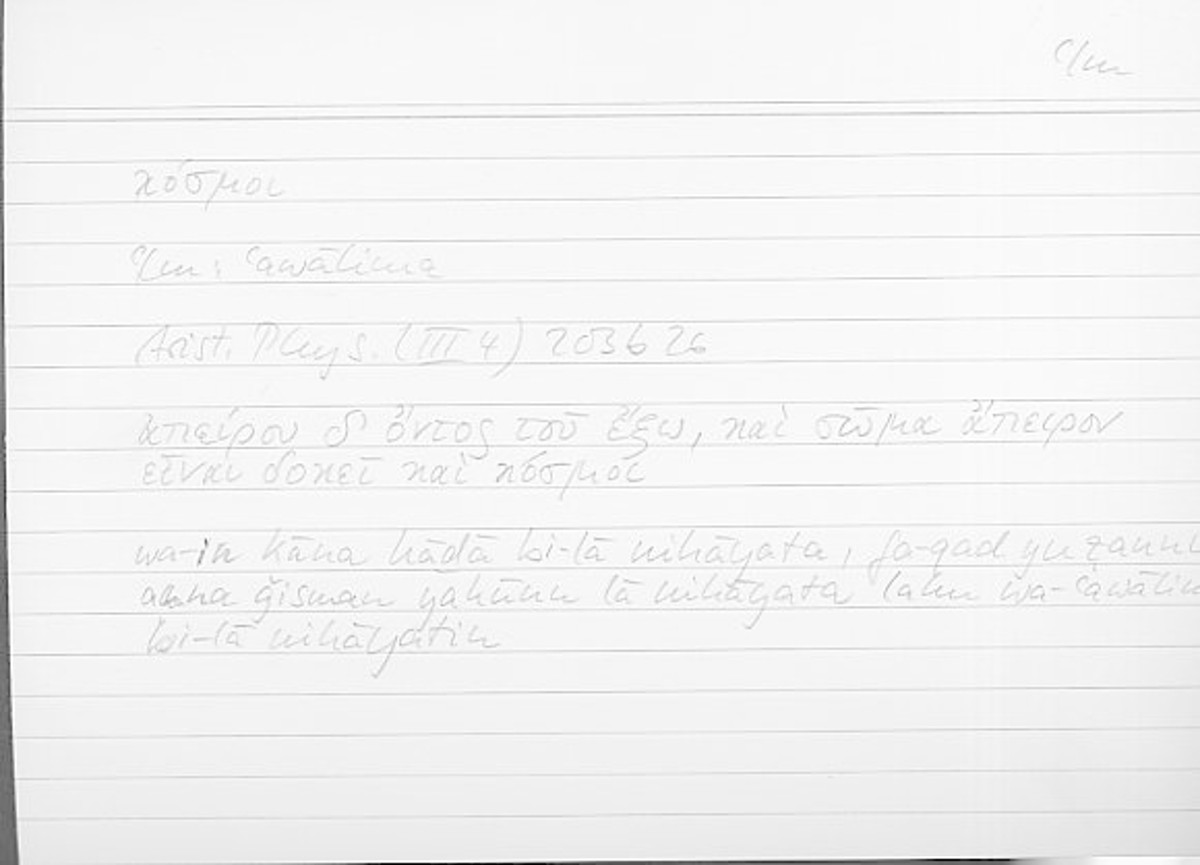 ʿlm
κόσμοι
ʿlm: ʿawālima
Arist. Phys. (III 4) 203b26
ἀπείρου δ' ὄντος τοῦ ἔξω, καὶ σῶμα ἄπειρον
εἶναι δοκεῖ καὶ κόσμοι
wa-in kāna hāḏā bi-lā nihāyata, fa-qad yuẓannu
anna ǧisman yakūnu lā nihāyata lahu wa-ʿawālim
bi-lā nihāyatin